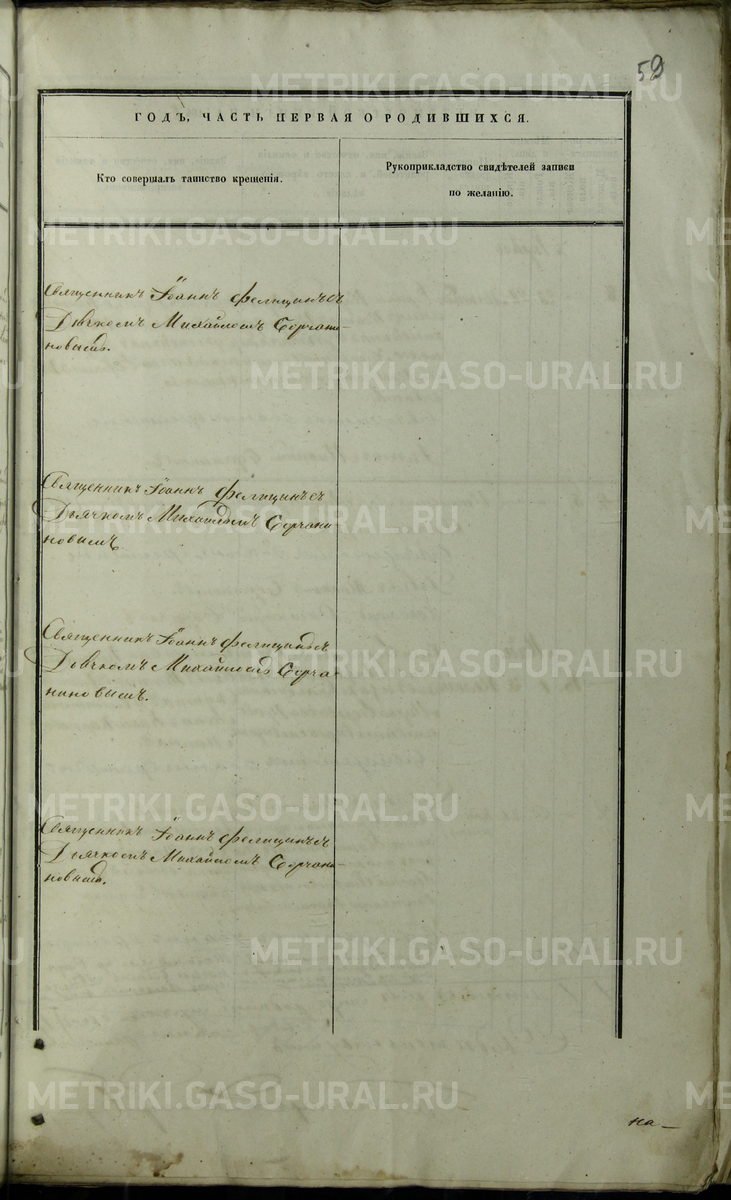 59
ГОДЪ, ЧАСТЬ ПЕРВАЯ О РОДИВШИХСЯ.
Кто совершалъ таинство крещенія.
Рукоприкладство свидѣтелей записи
по желанію.
Священникъ Іоаннъ Фелицинъ съ
Дьячкомъ Михайломъ Сорчани-
новымъ.
Священникъ Іоаннъ Фелицинъ съ
Дьячкомъ Михайломъ Сорчани
новымъ.
Священникъ Іоаннъ Фелицинъ съ
Дьячкомъ Михайломъ Сорча-
ниновымъ.
Священникъ Іоаннъ Фелицинъ съ
Дьячкомъ Михайломъ Сорчани
новымъ.
на
METRIKI.GASO-URAL.RU